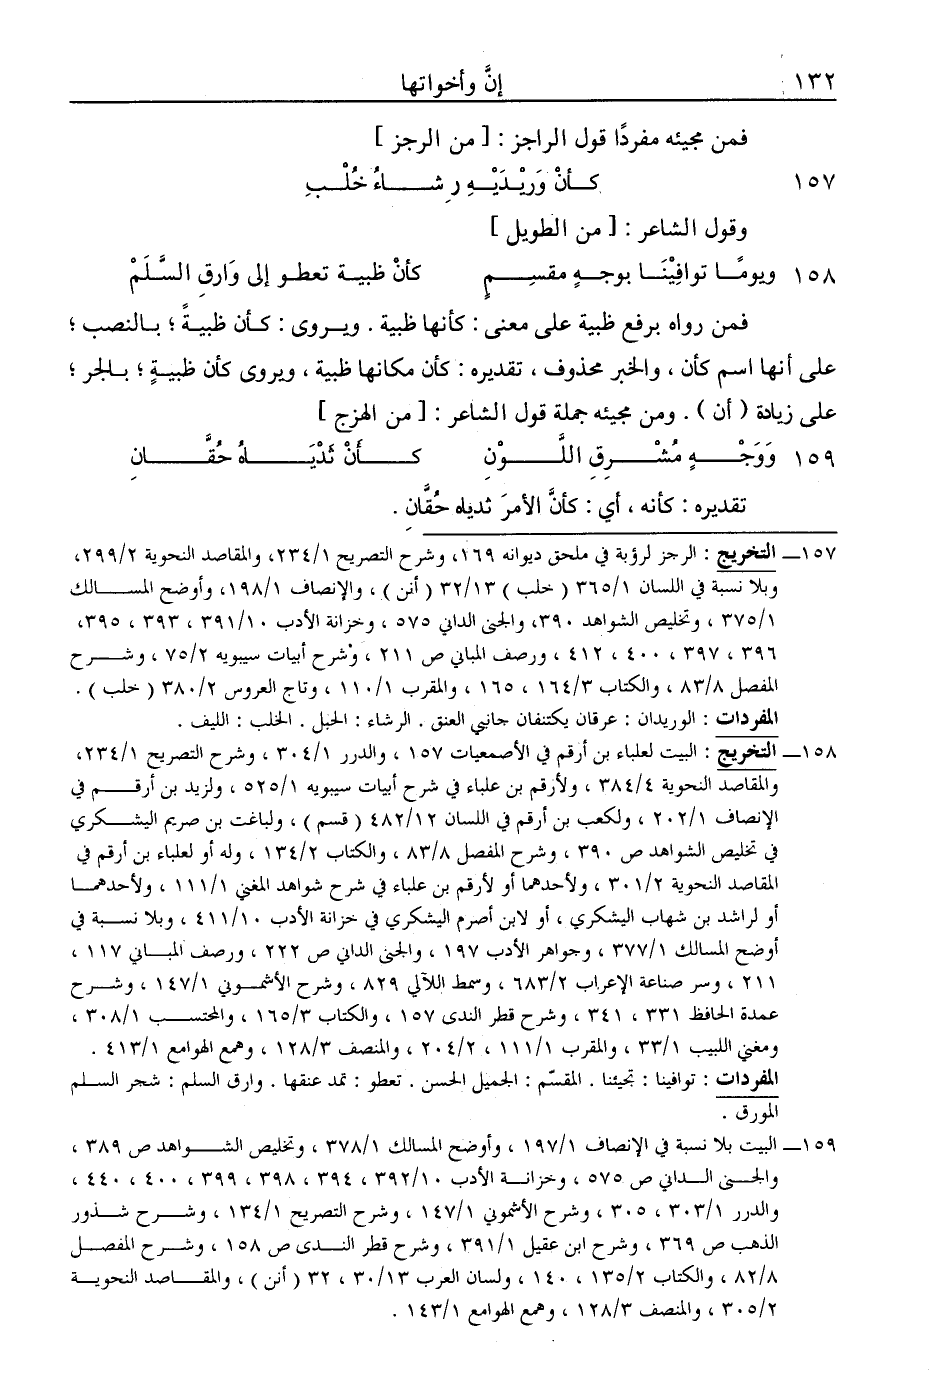 ١٣٢ إنَّ وأخواتها
فمن مجيئه مفردًا قول الراجز : [ من الرجز ]
١٥٧ كــأنْ وَرِيْــدَيْــهِ رِشــــاءُ خُلْــبِ
وقول الشاعر : [ من الطويل ]
١٥٨ ويومًـا توافِيْنَـا بوجــهٍ مقسِــمٍ كأنْ ظبية تعطو إلى وَارِق الســَّلَمْ
فمن رواه برفع ظبية على معنى : كأنها ظبية . ويــروى : كــأن ظبيــةً ؛ بــالنصب ؛
على أنها اسم كأن ، والخبر محذوف ، تقديره : كأن مكانها ظبية ، ويروى كأن ظبيــةٍ ؛ بــالجر ؛
على زيادة ( أن ) . ومن مجيئه جملة قول الشاعر : [ من الهزج ]
١٥٩ وَوَجْــــهٍ مُشْــــرِقِ اللَّــــوْنِ كــــأَنْ ثَدْيَــــاهُ حُقَّــــانِ
تقديره : كأنه ، أي : كأنَّ الأمرَ ثدياه حُقَّانِ .
١٥٧ــ التخريج : الرجز لرؤبة في ملحق ديوانه ١٦٩، وشرح التصريح ٢٣٤/١، والمقاصد النحوية ٢٩٩/٢،
وبلا نسبة في اللسان ٣٦٥/١ ( خلب ) ٣٢/١٣ ( أنن ) ، والإنصاف ١٩٨/١، وأوضح المســـالك
٣٧٥/١ ، وتخليص الشواهد ٣٩٠، والجنى الداني ٥٧٥ ، وخزانة الأدب ٣٩١/١٠ ، ٣٩٣ ، ٣٩٥،
٣٩٦ ، ٣٩٧ ، ٤٠٠ ، ٤١٢ ، ورصف المباني ص ٢١١ ، وشرح أبيات سيبويه ٧٥/٢ ، وشـــرح
المفصل ٨٣/٨ ، والكتاب ١٦٤/٣ ، ١٦٥ ، والمقرب ١١٠/١ ، وتاج العروس ٣٨٠/٢ ( خلب ) .
المفردات : الوريدان : عرقان يكتنفان جانبي العنق . الرشاء : الحبل . الخلب : الليف .
١٥٨ــ التخريج : البيت لعلباء بن أرقم في الأصمعيات ١٥٧ ، والدرر ٣٠٤/١ ، وشرح التصريح ٢٣٤/١،
والمقاصد النحوية ٣٨٤/٤ ، ولأرقم بن علباء في شرح أبيات سيبويه ٥٢٥/١ ، ولزيد بن أرقـــم في
الإنصاف ٢٠٢/١ ، ولكعب بن أرقم في اللسان ٤٨٢/١٢ ( قسم ) ، ولباغت بن صريم اليشـــكري
في تخليص الشواهد ص ٣٩٠ ، وشرح المفصل ٨٣/٨ ، والكتاب ١٣٤/٢ ، وله أو لعلباء بن أرقم في
المقاصد النحوية ٣٠١/٢ ، ولأحدهما أو لأرقم بن علباء في شرح شواهد المغني ١١١/١ ، ولأحدهمـــا
أو لراشد بن شهاب اليشكري ، أو لابن أصرم اليشكري في خزانة الأدب ٤١١/١٠ ، وبلا نســـبة في
أوضح المسالك ٣٧٧/١ ، وجواهر الأدب ١٩٧ ، والجنى الداني ص ٢٢٢ ، ورصف المبـــاني ١١٧ ،
٢١١ ، وسر صناعة الإعراب ٦٨٣/٢ ، وسمط اللآلي ٨٢٩ ، وشرح الأشمـــوني ١٤٧/١ ، وشـــرح
عمدة الحافظ ٣٣١ ، ٣٤١ ، وشرح قطر الندى ١٥٧ ، والكتاب ١٦٥/٣ ، والمحتســـب ٣٠٨/١ ،
ومغني اللبيب ٣٣/١ ، والمقرب ١١١/١ ، ٢٠٤/٢ ، والمنصف ١٢٨/٣ ، وهمع الهوامع ٤١٣/١ .
المفردات : توافينا : تجيئنا . المقسّم : الجميل الحسن . تعطو : تمد عنقها . وارق السلم : شجر السلم
المورق .
١٥٩ــ البيت بلا نسبة في الإنصاف ١٩٧/١ ، وأوضح المسالك ٣٧٨/١ ، وتخليص الشـــواهد ص ٣٨٩ ،
والجـــنى الـــداني ص ٥٧٥ ، وخزانـــة الأدب ٣٩٢/١٠ ، ٣٩٤ ، ٣٩٨ ، ٣٩٩ ، ٤٠٠ ، ٤٤٠ ،
والدرر ٣٠٣/١ ، ٣٠٥ ، وشرح الأشموني ١٤٧/١ ، وشرح التصريح ١٣٤/١ ، وشـــرح شـــذور
الذهب ص ٣٦٩ ، وشرح ابن عقيل ٣٩١/١ ، وشرح قطر النـــدى ص ١٥٨ ، وشـــرح المفصـــل
٨٢/٨ ، والكتاب ١٣٥/٢ ، ١٤٠ ، ولسان العرب ٣٠/١٣ ، ٣٢ ( أنن ) ، والمقـــاصد النحويـــة
٣٠٥/٢ ، والمنصف ١٢٨/٣ ، وهمع الهوامع ١٤٣/١ .